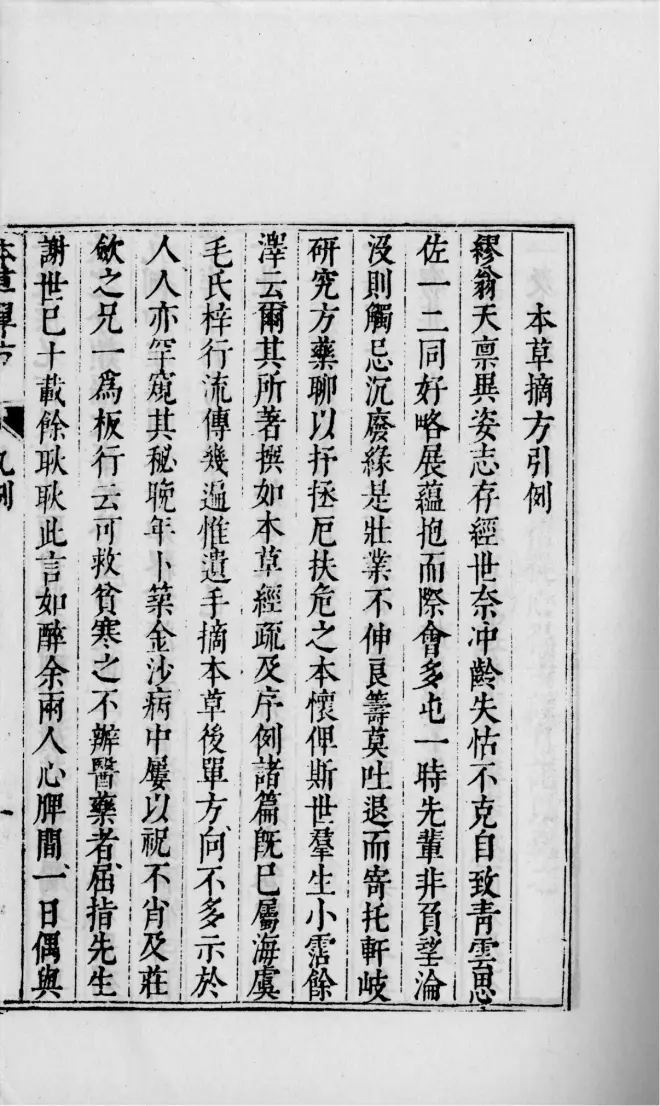 本草摘方引例
繆翁天禀異姿志存經世奈冲齡失怙不克自致青雲思
佐一二同好略展蘊抱而際會多屯一時先輩非負望淪
沒則觸忌沉廢緣是壯業不伸良籌莫吐退而寄托軒岐
研究方藥聊以抒拯厄扶危之本懷俾斯世羣生小霑餘
澤云爾其所著撰如本草經疏及序例諸篇旣已屬海虞
毛氏梓行流傳幾遍惟遺手摘本草後單方向不多示於
人人亦罕窺其秘晚年卜築金沙病中屢以祝不肖及莊
歛之兄一爲板行云可救貧寒之不辦醫藥者屈指先生
謝世已十載餘耿耿此言如醉余兩人心脾間一日偶與
本草單方
凡例
一